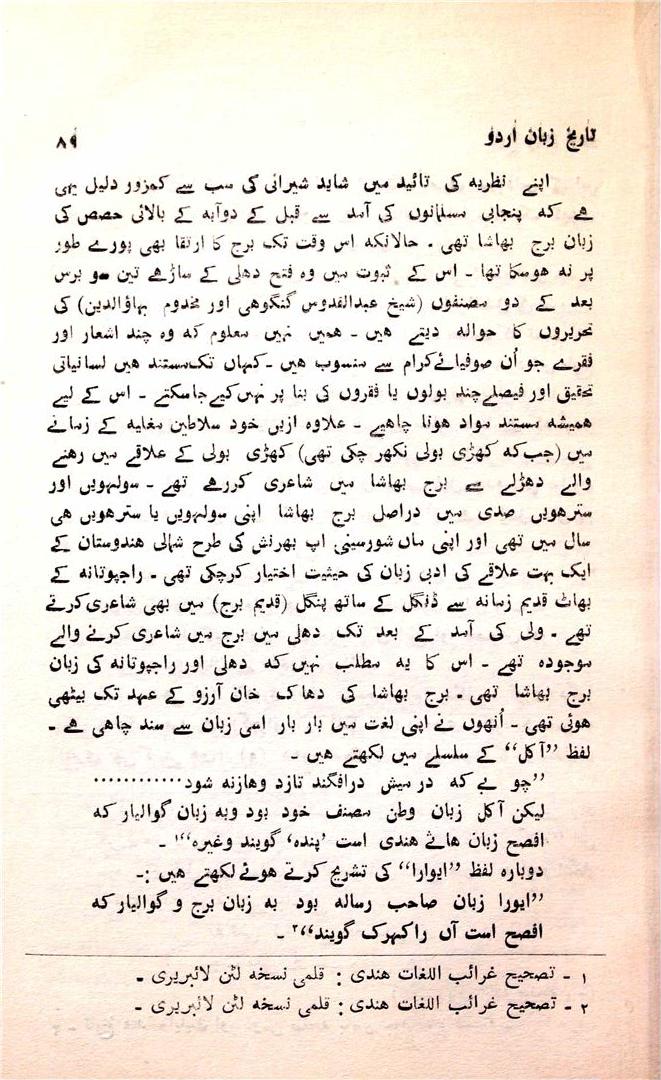 تاریخ زبان اردو
۸۹
اپنے نظریہ کی تائید میں شاید شیرانی کی سب سے کمزور دلیل یہی
ہے کہ پنجابی مسلمانوں کی آمد سے قبل کے دوآبہ کے بالائی حصص کی
زبان برج بھاشا تھی ۔ حالانکہ اس وقت تک برج کا ارتقا بھی پورے طور
پر نہ ہوسکا تھا ۔ اس کے ثبوت میں وہ فتح دہلی کے ساڑھے تین سو برس
بعد کے دو مصنفوں (شیخ عبدالقدوس گنگوہی اور مخدوم بہاؤالدین) کی
تحریروں کا حوالہ دیتے ہیں ۔ ہمیں نہیں معلوم کہ وہ چند اشعار اور
فقرے جو اُن صوفیائے کرام سے منسوب ہیں ۔ کہاں تک مستند ہیں لسانیاتی
تحقیق اور فیصلے چند بولوں یا فقروں کی بنا پر نہیں کیے جاسکتے ۔ اس کے لیے
ہمیشہ مستند مواد ہونا چاہیے ۔ علاوہ ازیں خود سلاطین مغلیہ کے زمانے
میں (جب کہ کھڑی بولی نکھر چکی تھی) کھڑی بولی کے علاقے میں رہنے
والے دھڑلے سے برج بھاشا میں شاعری کررہے تھے ۔ سولہویں اور
سترھویں صدی میں دراصل برج بھاشا اپنی سولہویں یا سترھویں ھی
سال میں تھی اور اپنی ماں شورسینی اپ بھرنش کی طرح شمالی ہندوستان کے
ایک بہت علاقے کی ادبی زبان کی حیثیت اختیار کرچکی تھی ۔ راجپوتانہ کے
بھاٹ قدیم زمانہ سے ڈنگل کے ساتھ پنگل (قدیم برج) میں بھی شاعری کرتے
تھے ۔ ولی کی آمد کے بعد تک دہلی میں برج میں شاعری کرنے والے
موجودہ تھے ۔ اس کا یہ مطلب نہیں کہ دہلی اور راجپوتانہ کی زبان
برج بھاشا تھی ۔ برج بھاشا کی دھاک خان آرزو کے عہد تک بیٹھی
ہوئی تھی ۔ اُنھوں نے اپنی لغت میں بار بار اسی زبان سے سند چاہی ہے ۔
لفظ ”آکل“ کے سلسلے میں لکھتے ہیں ۔
”چو بے کہ در میش درافگند تازد وھازنہ شود............
لیکن آکل زبان وطن مصنف خود بود وبہ زبان گوالیار کہ
افصح زبان ھائے ہندی است ’پندہ‘ گویند وغیرہ“۱ ۔
دوبارہ لفظ ”ایوارا“ کی تشریح کرتے ہوئے لکھتے ہیں :۔
”ایورا زبان صاحب رسالہ بود بہ زبان برج و گوالیار کہ
افصح است آں را کہرک گویند“۲ ۔
۱ ۔ تصحیح غرائب اللغات ہندی : قلمی نسخہ لٹن لائبریری ۔
۲ ۔ تصحیح غرائب اللغات ہندی : قلمی نسخہ لٹن لائبریری ۔